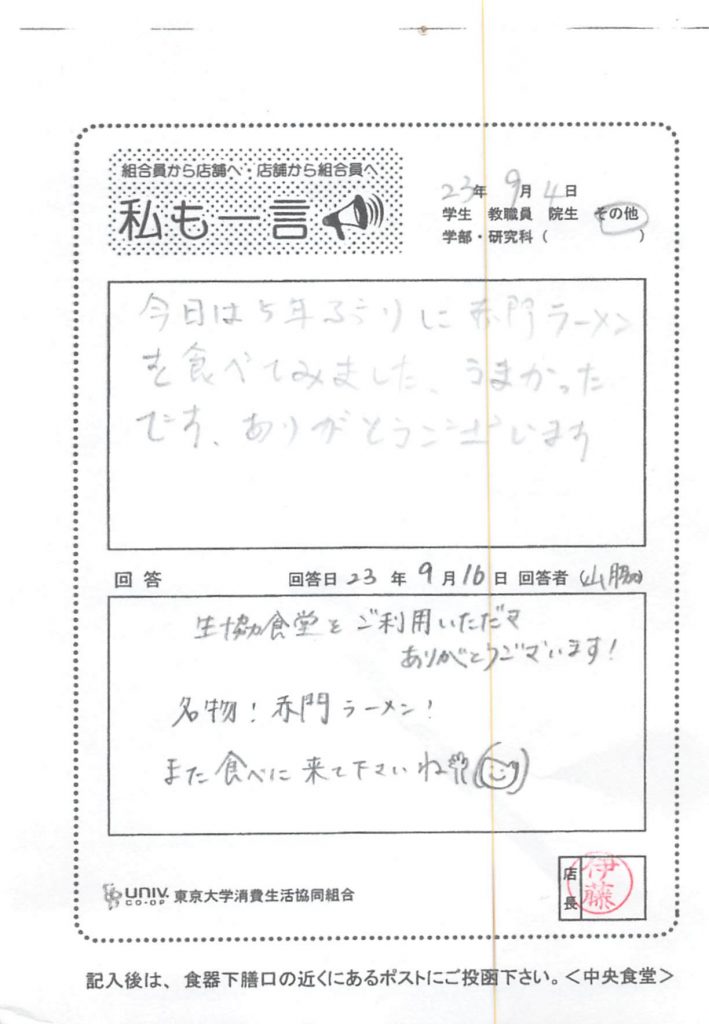 組合員から店舗へ・店舗から組合員へ
私も一言
23年 9月 4日
学生 教職員 院生 その他
学部・研究科( )
今日は5年ぶりに赤門ラーメン
を食べてみました、うまかった
です、ありがとうございます
回答 回答日 23 年 9 月 16 日 回答者 (山脇)
生協食堂をご利用いただき
ありがとうございます!
名物!赤門ラーメン!
また食べに来て下さいね
UNIV. CO-OP 東京大学消費生活協同組合
店長 伊藤
記入後は、食器下膳口の近くにあるポストにご投函下さい。<中央食堂>